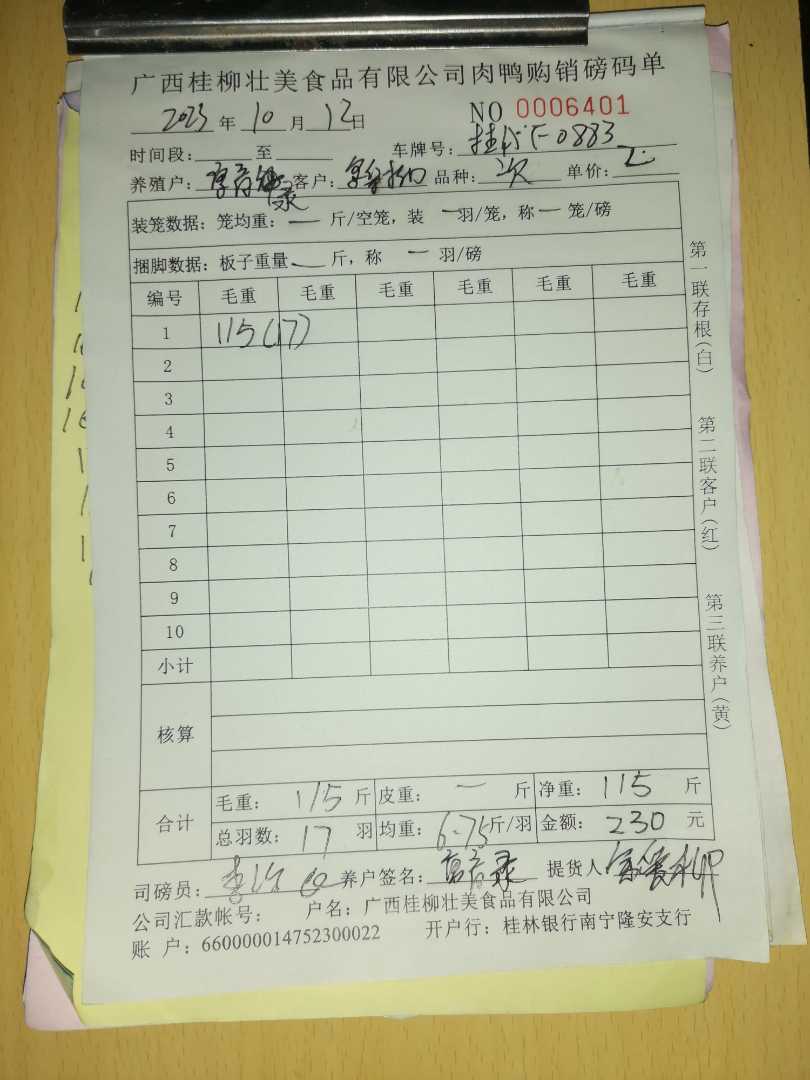 广西桂柳壮美食品有限公司肉鸭购销磅码单
2023年10月12日 NO 0006401
时间段: 至 车牌号: 0883
养殖户: 客户: 品种: 次 单价: 2.
装笼数据: 笼均重: — 斤/空笼, 装 — 羽/笼, 称 — 笼/磅
捆脚数据: 板子重量 — 斤, 称 — 羽/磅
编号 毛重 毛重 毛重 毛重 毛重 毛重
1 115(17)
2
3
4
5
6
7
8
9
10
小计
核算
合计
毛重: 115 斤 皮重: — 斤 净重: 115 斤
总羽数: 17 羽 均重: 6.75 斤/羽 金额: 230 元
司磅员: 养户签名: 提货人
公司汇款帐号: 户名: 广西桂柳壮美食品有限公司
账 户: 660000014752300022 开户行: 桂林银行南宁隆安支行
第一联存根(白)
第二联客户(红)
第三联养户(黄)